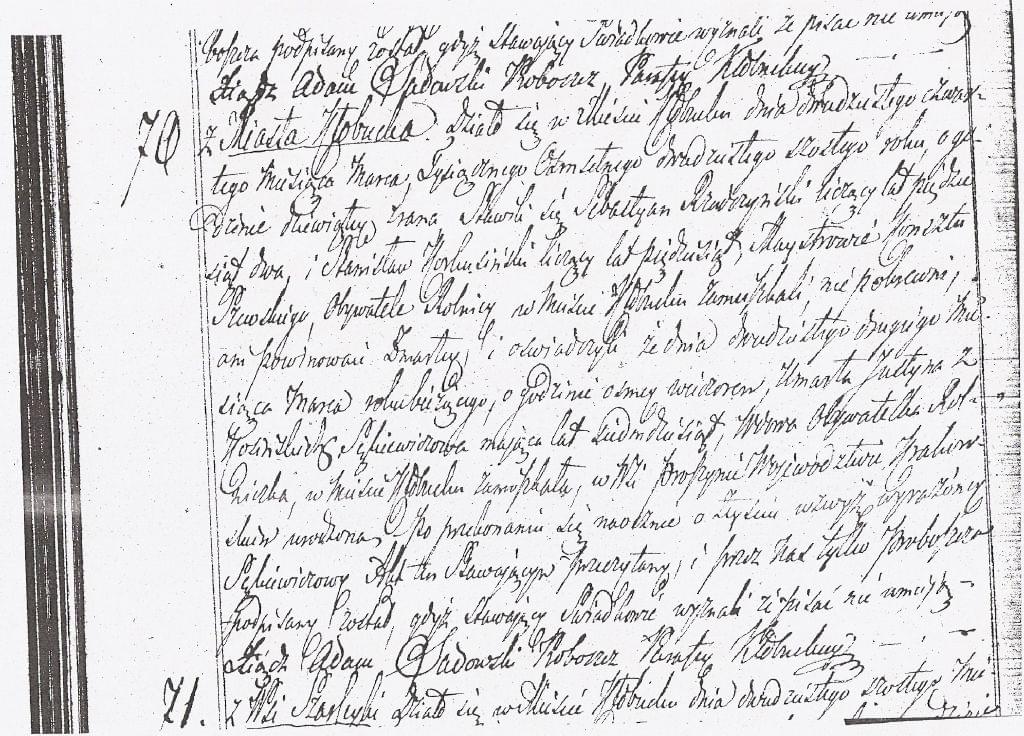 boszcza podpisany został, gdyż Stawający Świadkowie wyznali że pisać nie umieją
Xiądz Adam Sadowski Proboszcz Parafij Kłobuckiey
70 z Miasta Kłobucka. Działo się w Mieście Kłobucku dnia dwudziestego czwar-
tego Miesiąca Marca, Tysiącznego Ośmsetnego dwudziestego szóstego roku, o go-
dzinie dziewiątey zrana Stawili się Sebastyan liczący lat pięćdzie
siąt dwa, i Stanisław liczący lat pięćdziesiąt, Maystrowie Konsztu
Szewskiego, Obywatele Rolnicy w Mieście Kłobucku zamieszkali, nie pokrewni,
ani powinowaci Zmarłey, i oświadczyli że dnia dwudziestego drugiego Mie-
siąca Marca roku bieżącego, o godzinie ósmey wieczorem, Umarła Justyna z
mająca lat siedmdziesiąt, Wdowa Obywatelka Rol-
niczka, w Mieście Kłobucku zamieszkała, w Wsi Województwie Krakow-
skim urodzona. Po przekonaniu się naocznie o Zeyściu wzwyż wyrażoney
Akt ten Stawającym przeczytany, i przez Nas tylko Proboszcza
podpisany został, gdyż Stawający Świadkowie wyznali iż pisać nie umieją
Xiądz Adam Sadowski Proboszcz Parafij Kłobuckiey
71. z Wsi Działo się w Mieście Kłobucku dnia dwudziestego szóstego Mie